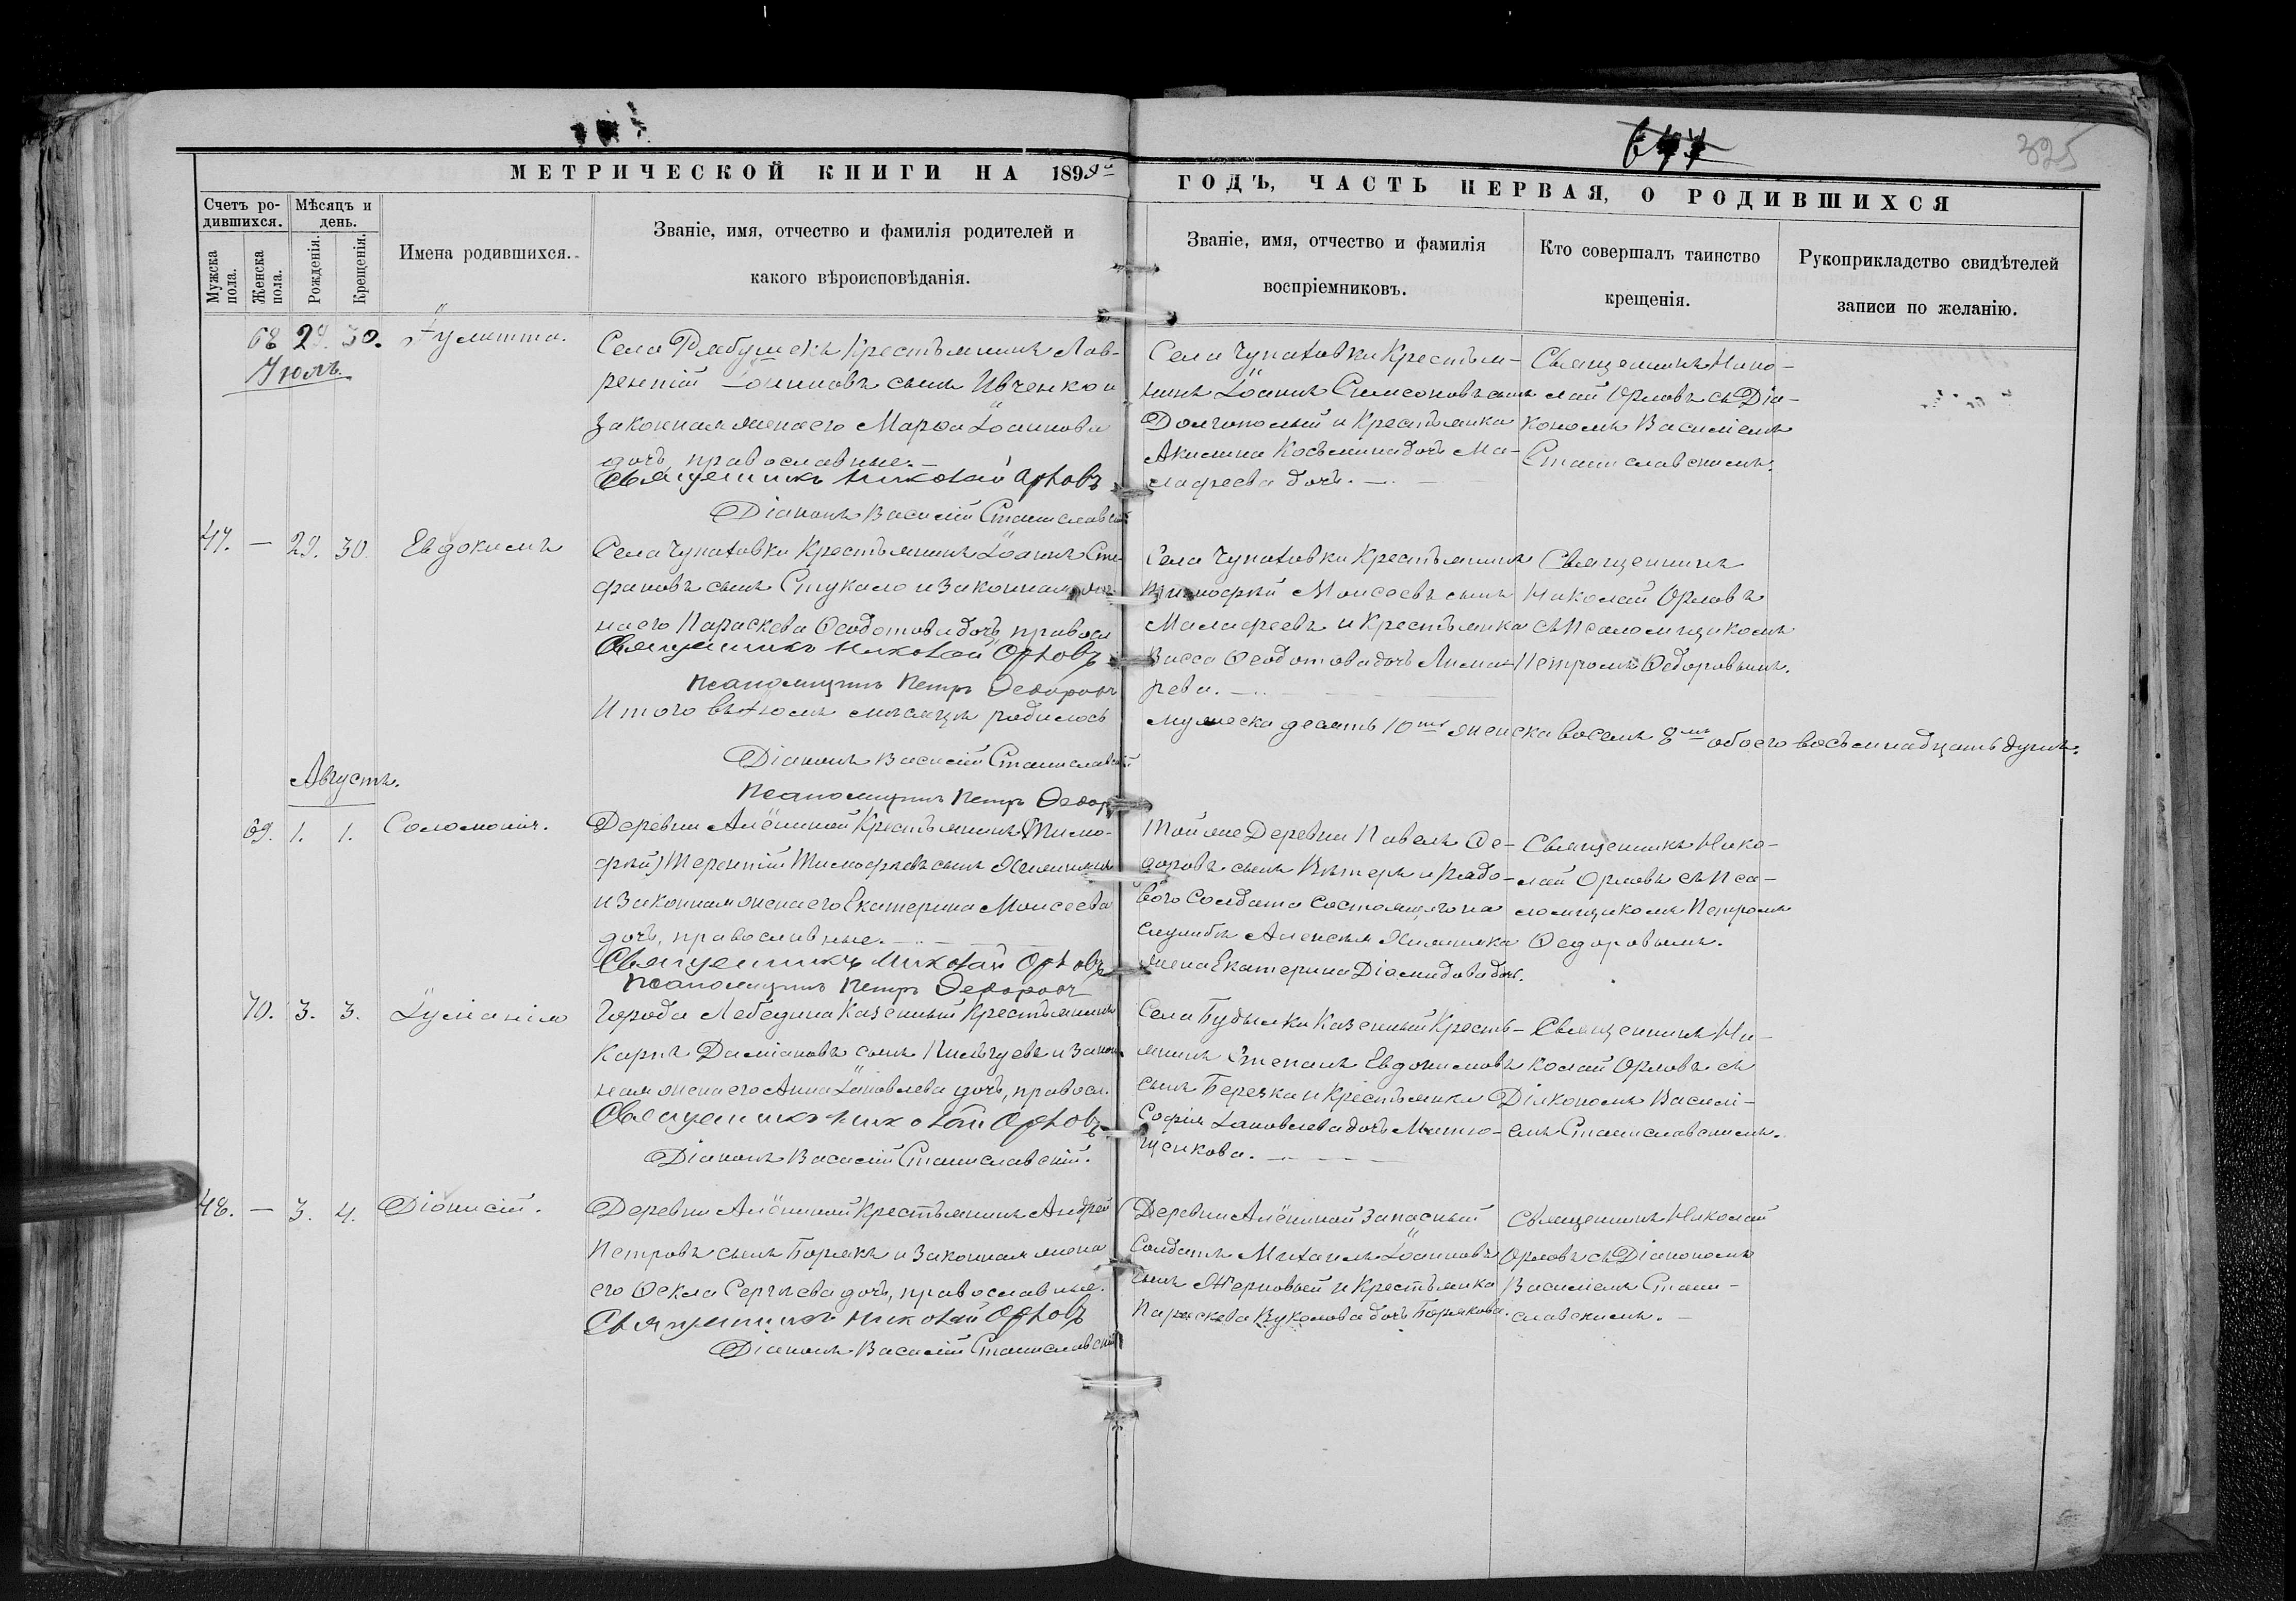 325
МЕТРИЧЕСКОЙ КНИГИ НА 1899й ГОДЪ, ЧАСТЬ ПЕРВАЯ, О РОДИВШИХСЯ
Счетъ ро-
дившихся.
Мѣсяцъ и
день.
Мужска
пола.
Женска
пола.
Рожденія.
Крещенія.
Имена родившихся.
Званіе, имя, отчество и фамилія родителей и
какого вѣроисповѣданія.
Званіе, имя, отчество и фамилія
воспріемниковъ.
Кто совершалъ таинство
крещенія.
Рукоприкладство свидѣтелей
записи по желанію.
68 29. 30. Іулитта.
Іюль.
Села Рябушекъ Крестьянинъ Лав-
рентій Іоанновъ сынъ Ивченко и
законная жена его Марѳа Іоаннова
дочь, православные.
Священникъ Николай Орловъ
Діаконъ Василій Станиславскій
Села Чупаховки Крестья-
нинъ Іоаннъ Симеоновъ сынъ
Долгополый и Крестьянка
Акилина Косьмина дочь Ма-
лафеева дочь.
Священникъ Нико-
лай Орловъ съ Діа-
кономъ Василіемъ
Станиславскимъ.
47. — 29. 30. Евдокимъ
Села Чупаховки Крестьянинъ Іоаннъ Сте-
фановъ сынъ Стукало и законная же-
на его Параскева Ѳеодотова дочь, правосл.
Священникъ Николай Орловъ
Псаломщикъ Петръ Ѳедоровъ
Села Чупаховки Крестьянинъ
Тимоѳей Моисеевъ сынъ
Малафеевъ и Крестьянка
Васса Ѳеодотова дочь Лима-
рева.
Священникъ
Николай Орловъ
съ Псаломщикомъ
Петромъ Ѳедоровымъ.
Итого въ Іюлѣ мѣсяцѣ родилось мужеска десять 10ть женска восемь 8мь обоего восемнадцать душъ.
Діаконъ Василій Станиславскій
Псаломщикъ Петръ Ѳедор
Августъ.
69. 1. 1. Соломонія.
Деревни Алёшиной Крестьянинъ (Тимо-
фей) Терентій Тимофеевъ сынъ
и законная жена его Екатерина Моисеева
дочь, православные.
Священникъ Николай Орловъ
Псаломщикъ Петръ Ѳедоровъ
Той же Деревни Павелъ Ѳе-
доровъ сынъ и рядо-
вого Солдата состоящаго на
службѣ Алексѣя
жена Екатерина Діомидова дочь.
Священникъ Нико-
лай Орловъ съ Пса-
ломщикомъ Петромъ
Ѳедоровымъ.
70. 3. 3. Іуліанія
Города Лебедина Казенный Крестьянинъ
Карпъ Даміановъ сынъ и закон-
ная жена его Анна Іаковлева дочь, правосл.
Священникъ Николай Орловъ
Діаконъ Василій Станиславскій.
Села Будылки Казенный Кресть-
янинъ Степанъ Евдокимовъ
сынъ Березка и Крестьянка
Софія Іаковлева дочь Митю-
щенкова.
Священникъ Ни-
колай Орловъ съ
Діякономъ Василі-
емъ Станиславскимъ.
48. — 3. 4. Діонисій.
Деревни Алёшиной Крестьянинъ Андрей
Петровъ сынъ Борякъ и законная жена
его Ѳекла Сергѣева дочь, православные.
Священникъ Николай Орловъ
Діаконъ Василій Станиславскій
Деревни Алёшиной Запасный
Солдатъ Михаилъ Іоанновъ
сынъ Жерновый и Крестьянка
Параскева Вуколова дочь Борякова.
Священникъ Николай
Орловъ съ Діакономъ
Василіемъ Стани-
славскимъ.